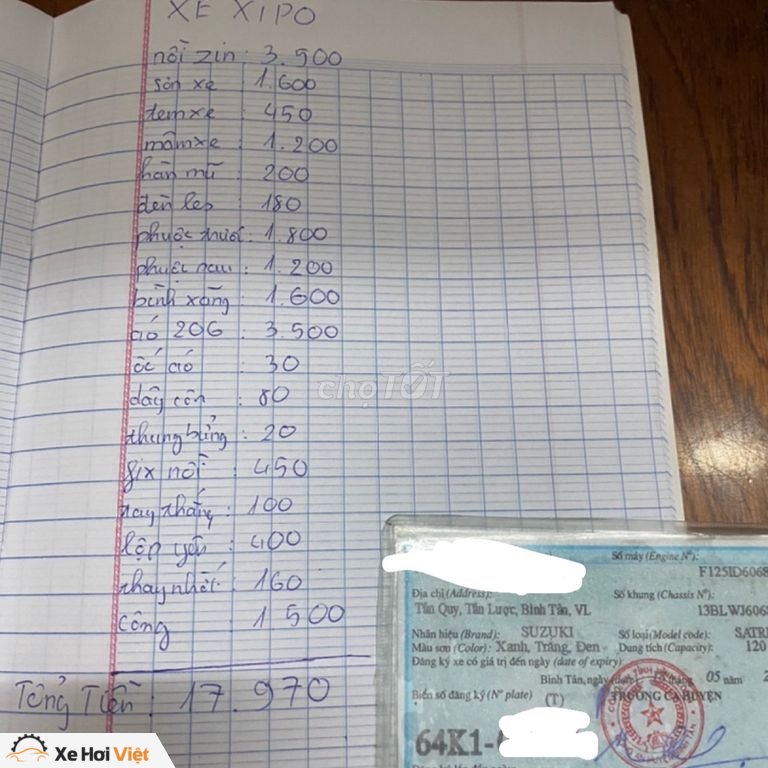 XE XIPO
nồi zin : 3.500
sơn xe : 1.600
tem xe : 450
mâm xe : 1.200
hàn mũ : 200
đèn lep : 180
phuộc trước : 1.800
phuộc sau : 1.200
bình xăng : 1.600
dó 206 : 3.500
ốc dó : 30
dây côn : 80
thung bửng : 20
fix nồi : 450
tay thắng : 100
lộp yên : 400
thay nhớt : 160
công 1.500
Tổng Tiền : 17.970
chợTỐT
Số máy (Engine Nº):
F125ID6068
Địa chỉ (Address):
Số khung (Chassis Nº):
Tân Quy, Tân Lược, Bình Tân, VL
13BLWJ606
Nhãn hiệu (Brand): SUZUKI
Số loại (Model code): SATR
Màu sơn (Color): Xanh, Trắng, Đen
Dung tích (Capacity): 120
Đăng ký xe có giá trị đến ngày (date of expiry)
Bình Tân, ngày 05 năm 2
Biển số đăng ký (Nº plate) (T)
TRƯỞNG CA HUYỆN
64K1-
Xe Hơi Việt